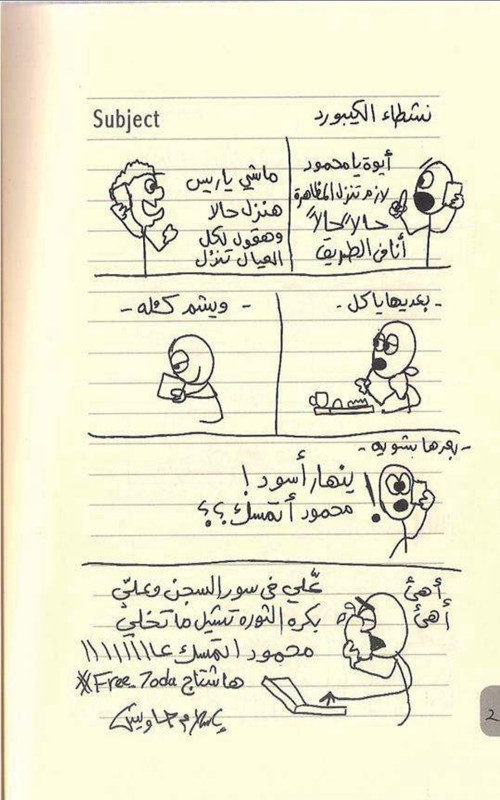 Subject
نشطاء الكيبورد
أيوة يا محمود
لازم تنزل المظاهرة
حالا "حالا"
أنا في الطريق
ماشي يا ريس
هنزل حالا
وهقول لكل
العيال تنزل
- بعديها ياكل -
- ويشم كُلّه -
- بعدها بشويه -
ينهار أسود!
محمود أتمسك؟؟
أهئ
أهئ
عَّلي في سور السجن وعليّ
بكره الثوره تشيل ما تخلي
محمود اتمسك عاااااااا
هاشتاج Free Zoda※
إسلام جاويش
2